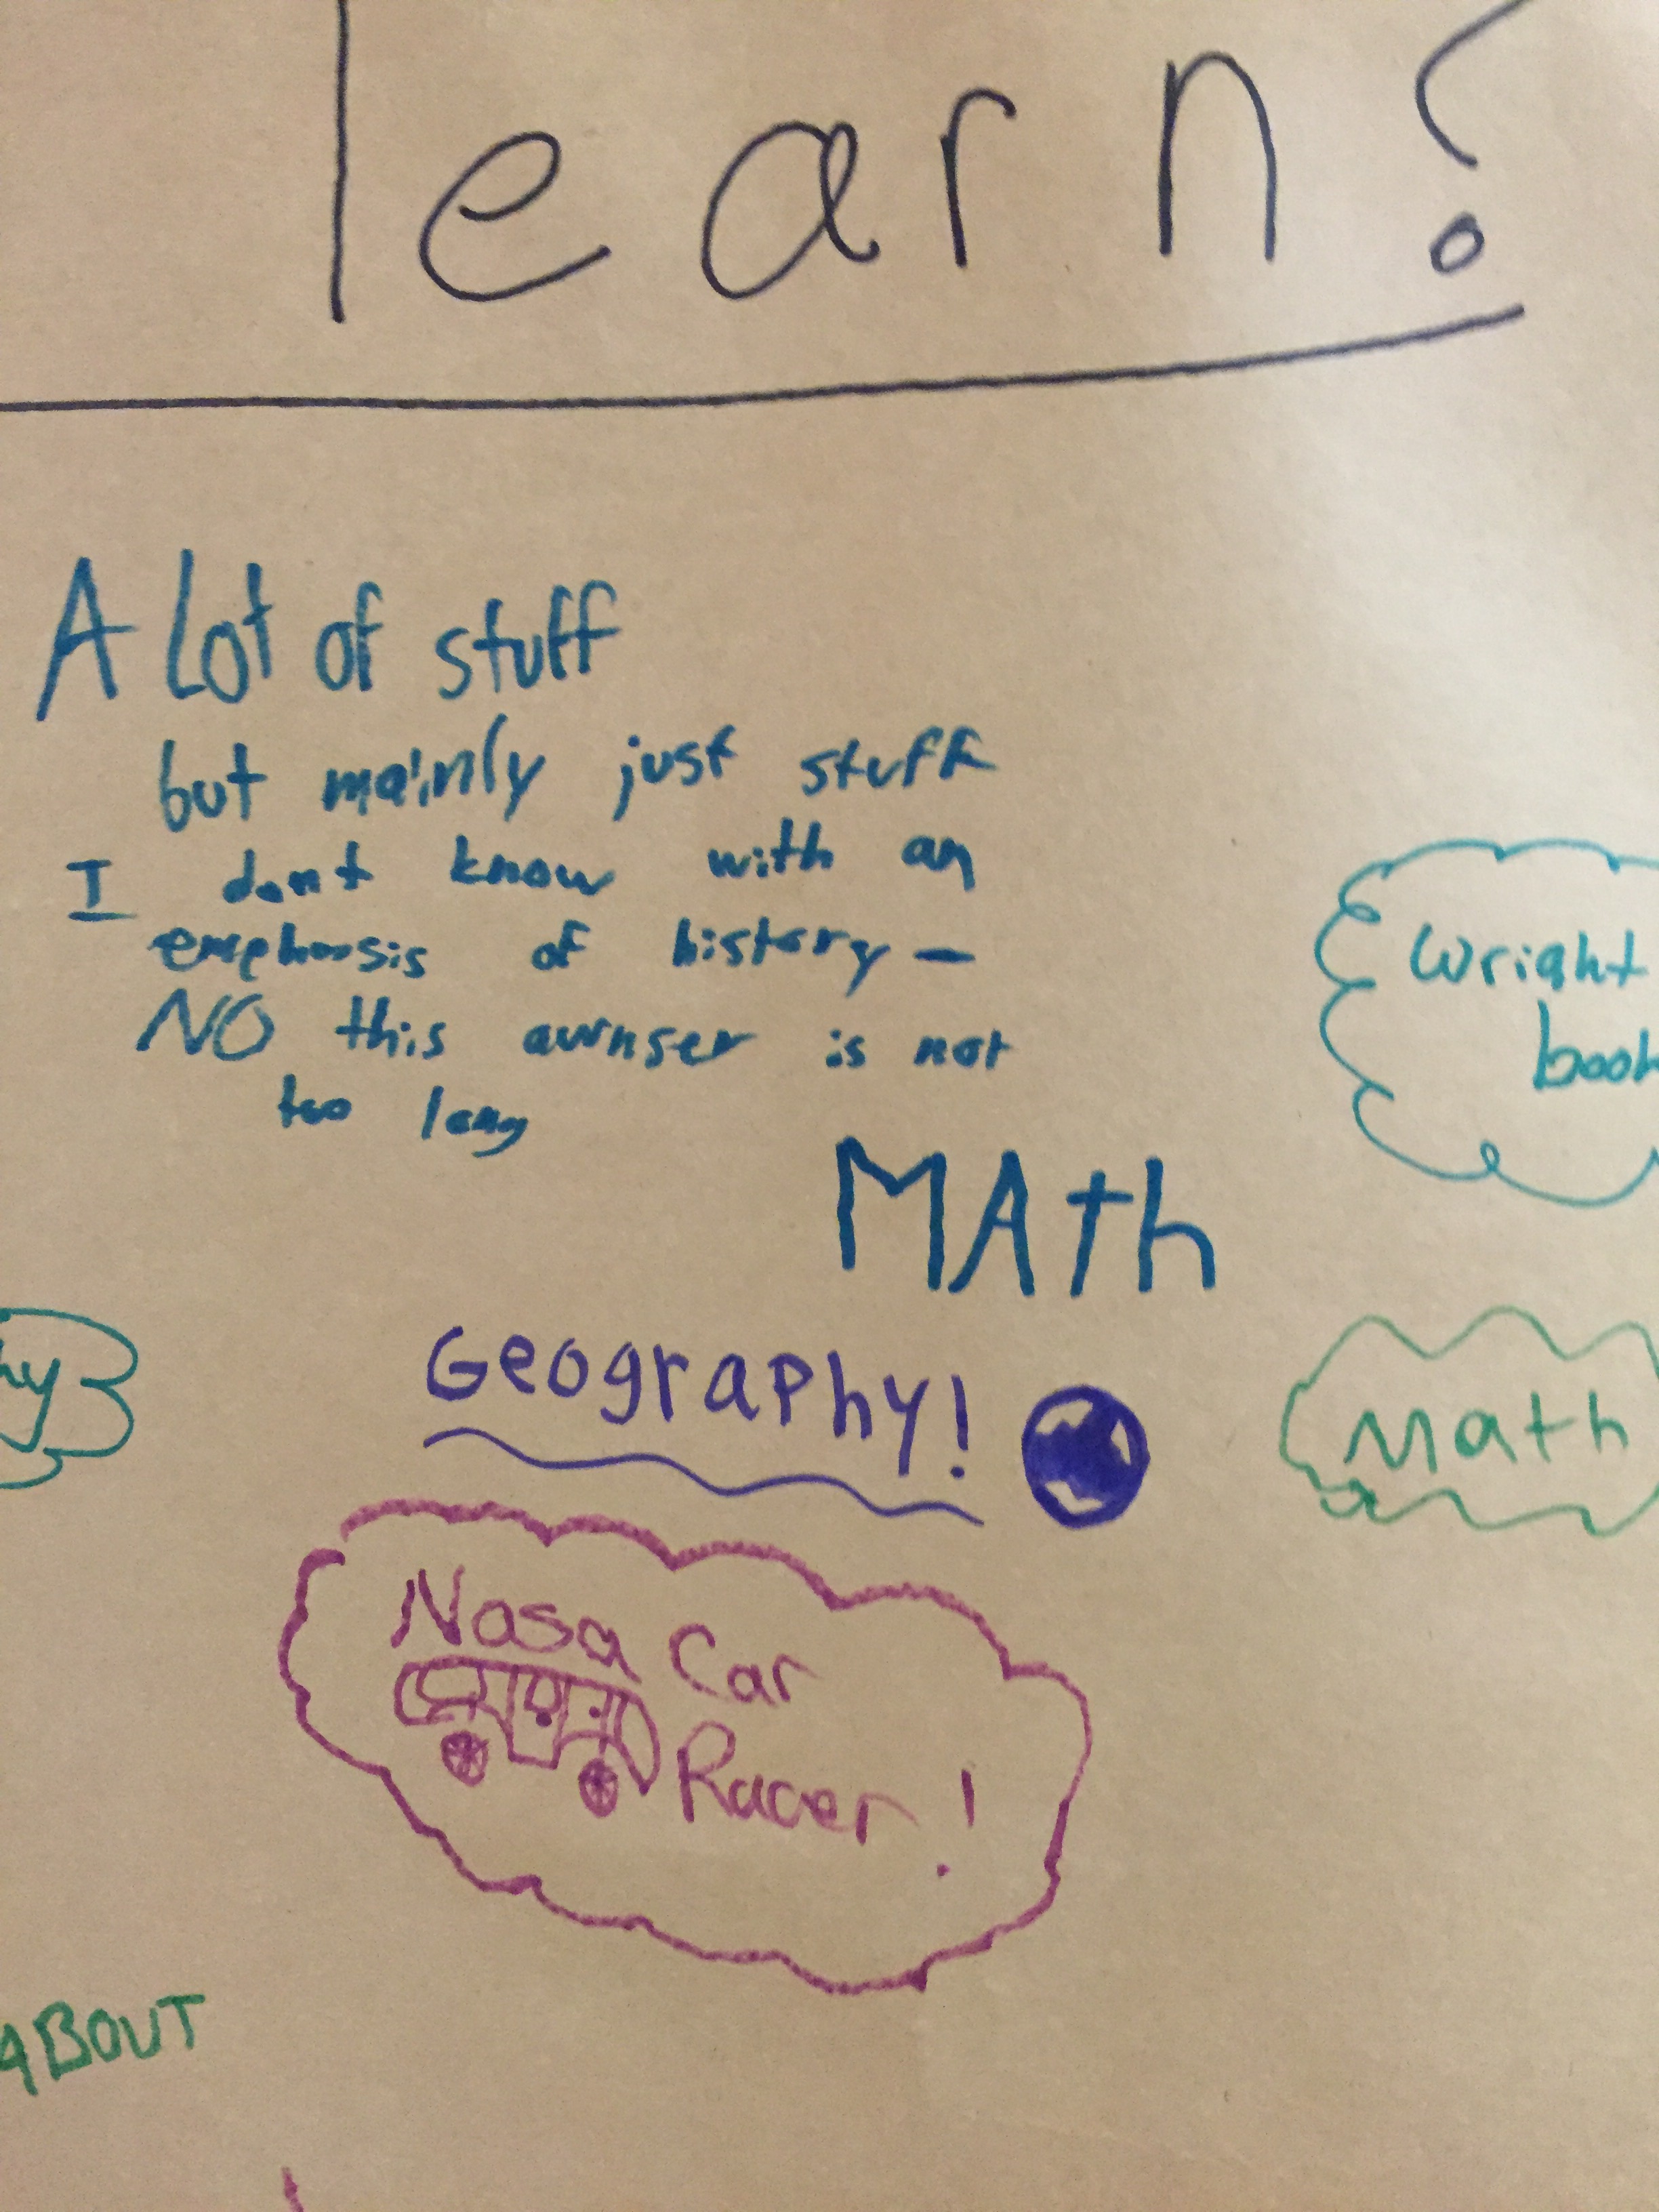 learn?
A Lot of stuff
but mainly just stuff
I dont know with an
emphasis of history —
NO this awnser is not
too long
Wright
book
MAth
hy
Geography!
Math
Nasa Car
Racer!
ABOUT